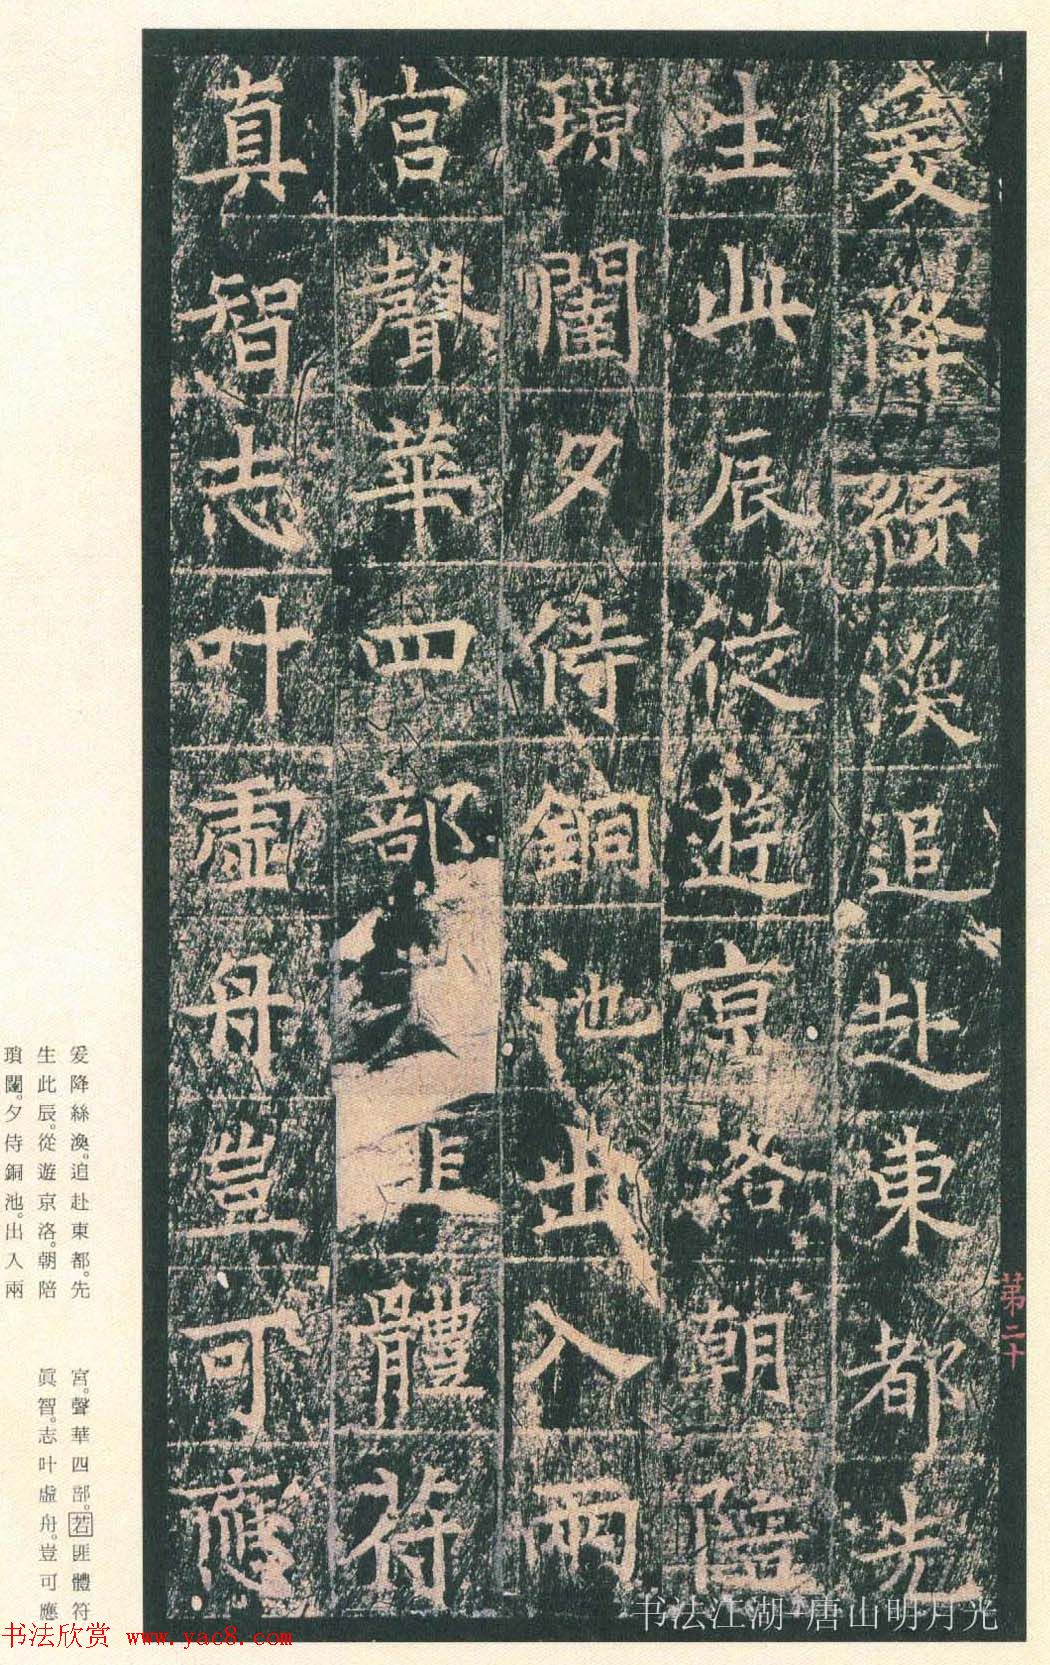 爰降絲渙追赴東都先
生此辰從遊京洛朝陪
瑣闥夕侍銅池出入兩
宮聲華四部匪體符
真智志叶虛舟豈可應
第二十
爰降絲渙。追赴東都。先
生此辰。從遊京洛。朝陪
瑣闥。夕侍銅池。出入兩
宮。聲華四部。若匪體符
眞智。志叶虛舟。豈可應
书法江湖-唐山明月光
书法欣赏 www.yac8.com